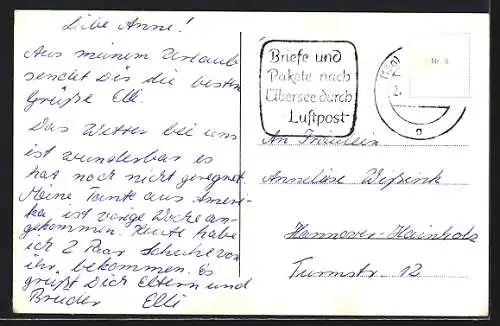 Liebe Anne!
Aus meinem Urlaub
sendet Dir die besten
Grüße Elli.
Das Wetter bei uns
ist wunderbar es
hat noch nicht geregnet.
Meine Tante aus Ameri-
ka ist vorige Woche an-
gekommen. Heute habe
ich 2 Paar Schuhe von
ihr bekommen. Es
grüßt Dich Eltern und
Bruder Elli
Briefe und
Pakete nach
Übersee durch
Luftpost
Nr. 8
a
An Fräulein
Anneliese
Hannover-Hainholz
Turmstr. 12